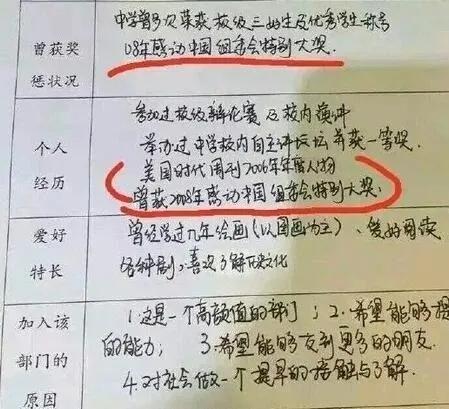 曾获奖
惩状况
中学曾多次荣获校级三好生及优秀学生称号
08年感动中国组委会特别大奖.
个人
经历
参加过校级辩论赛及校内演讲
举办过中学校内自主讲坛并获一等奖.
美国时代周刊2006年年度人物
曾获2008年感动中国组委会特别大奖.
爱好
特长
曾经学过几年绘画(以国画为主)、爱好阅读
各种剧,喜欢了解历史文化
加入该
部门的
原因
1.这是一个高颜值的部门;2.希望能够提
的能力;3.希望能够交到更多的朋友.
4.对社会做一个提早的接触与了解.